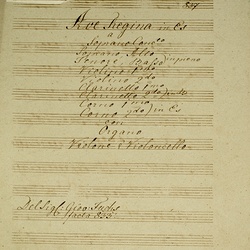 Ave Regina in Es
a
Soprano Conc:to
Soprano, Alto
Tenore, Basso
Violino 1mo
Violino 2do
Clarinetto 1mo
Clarinetto 2do
Corno 1mo
Corno 2do in Es
con
Organo
Violone e Violoncello
Del Sig: Giov: Fuchs